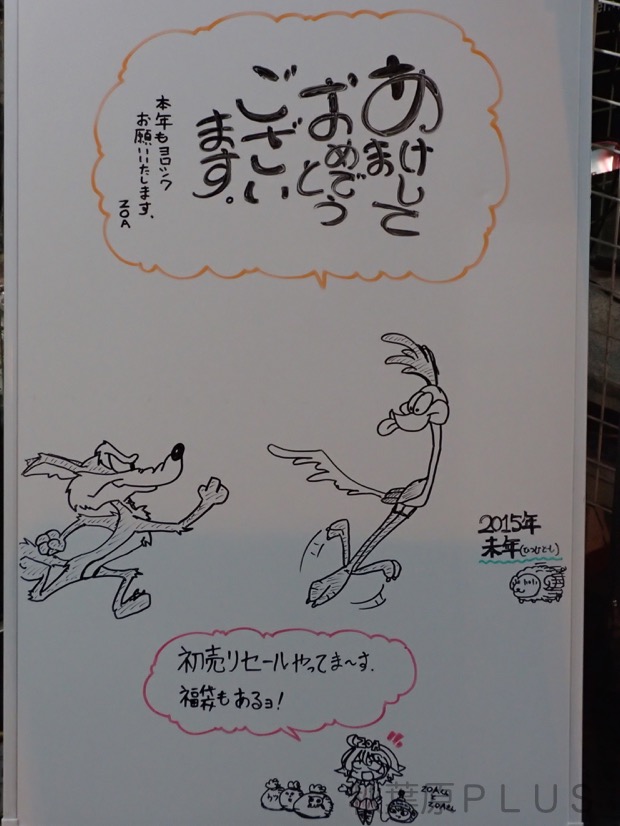 あけまして
おめでとう
ござい
ます。
本年もヨロシク
お願いいたします、
ZOA
2015年
未年(ひつじどし)
初売りセールやってま〜す.
福袋もあるヨ!
ZOA
葉原PLUS